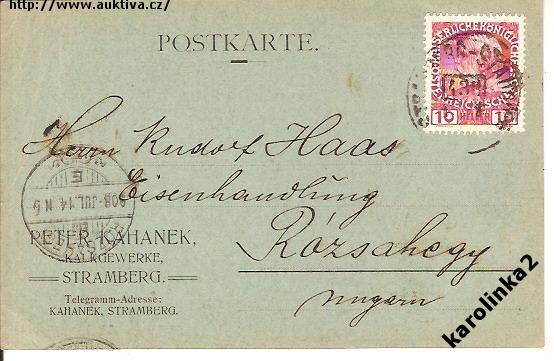 http://www.auktiva.cz/
POSTKARTE.
KAISERLICHE KÖNIGLICHE
ÖSTERREICHISCHE
10 HELLER 10
Herrn Rudolf Haas
Eisenhandlung
Rózsahegy
Ungarn
908 JUL. 14 N 5
PETER KAHANEK,
KALKGEWERKE,
STRAMBERG.
Telegramm-Adresse:
KAHANEK, STRAMBERG.
karolinka2